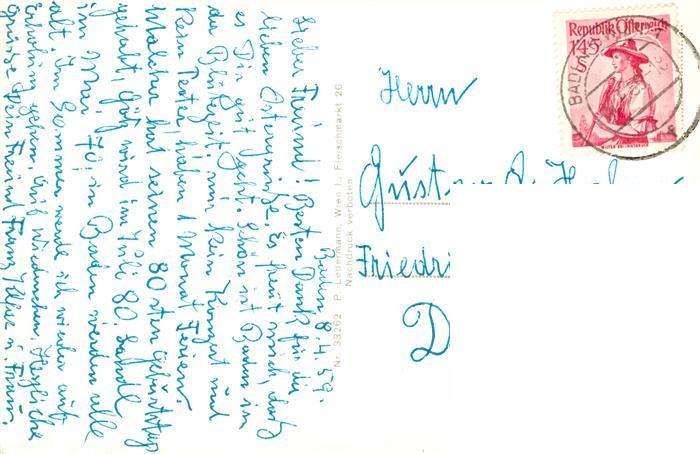 Baden 8.4.59.
Lieber Freund! Besten Dank für die
lieben Ostergrüße. Es freut mich, daß
es Dir gut geht. Schön ist Baden in
der Blütezeit; nur kein Konzert und
kein Teater, haben 1 Monat Ferien.
hat seinen 80 sten Geburtstag
gehabt, Götz wird im Juli 80.
im Mai 70; in Baden werden alle
alt. Im Sommer werde ich wieder auf
Erholung gehen. Auf Wiedersehen. Herzliche
grüsse Dein Freund Franz u. Frau.
Nr. 33262 P. Ledermann, Wien I., Fleischmarkt 26
Nachdruck verboten
Republik Österreich
1'45
BADEN
Herrn
Gust
Friedri
D